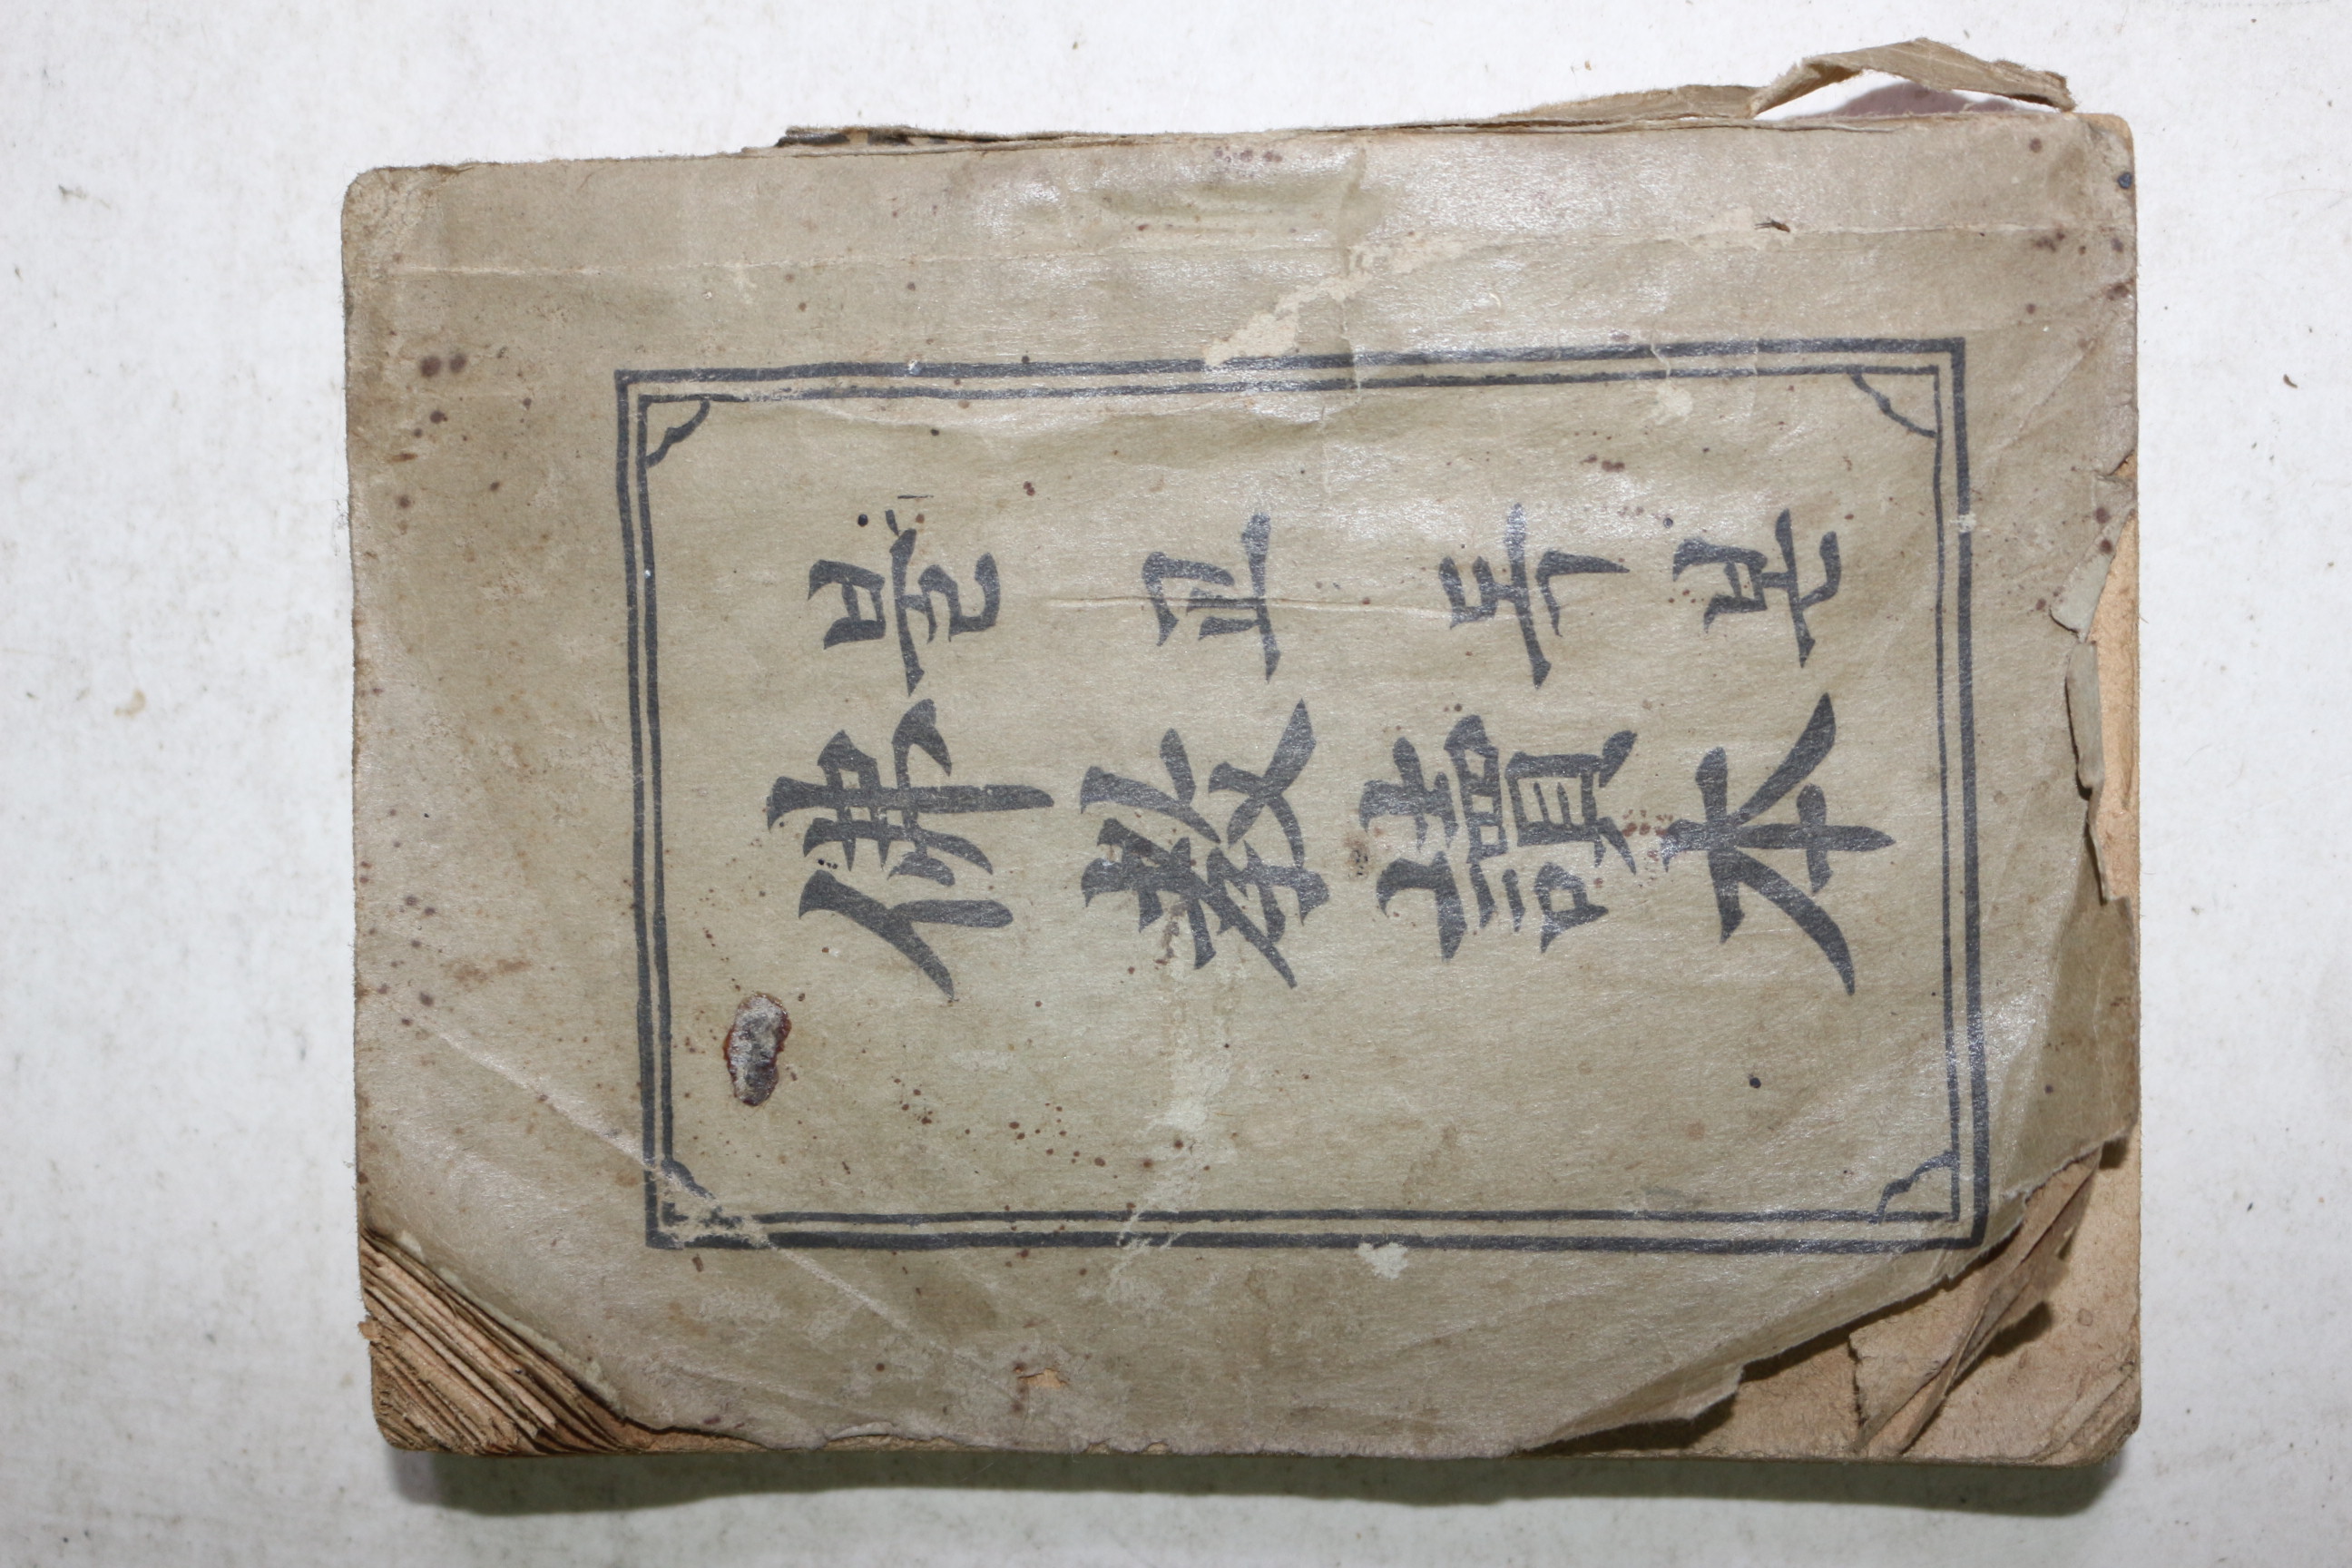 불교독본
佛教讀本